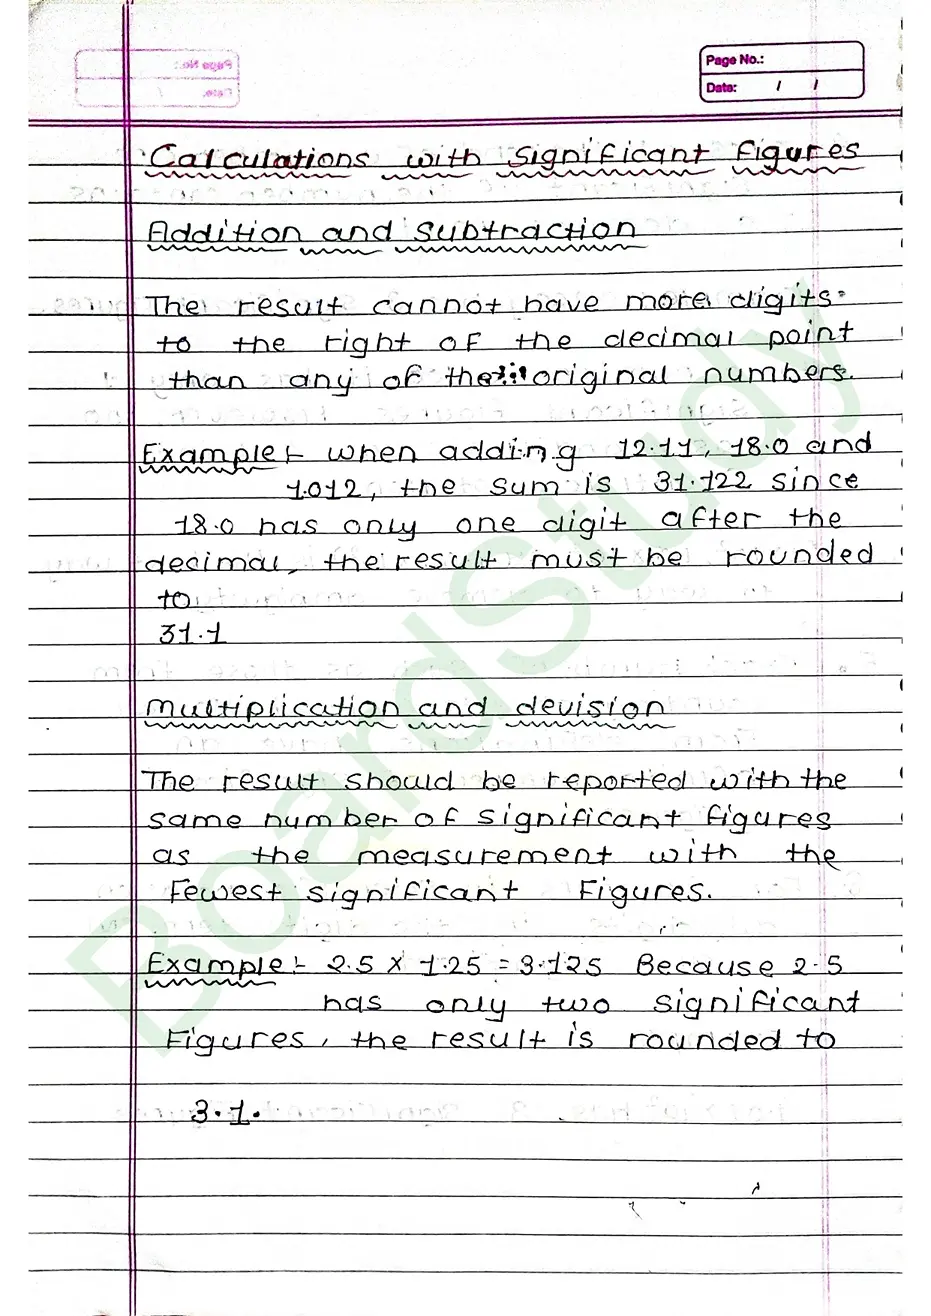 Page No.:
Date: / /
Calculations with significant figures
Addition and subtraction
The result cannot have more digits
to the right of the decimal point
than any of the original numbers.
Example:- when adding 12.11, 18.0 and
1.012, the sum is 31.122 since
18.0 has only one digit after the
decimal, the result must be rounded
to
31.1
multiplication and devision
The result should be reported with the
same number of significant figures
as the measurement with the
fewest significant figures.
Example:- 2.5 × 1.25 = 3.125 Because 2.5
has only two significant
figures, the result is rounded to
3.1.
BoardStudy